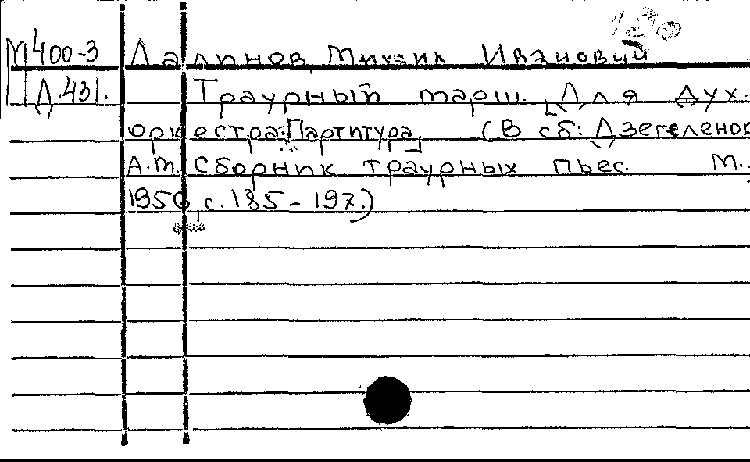 М400-3 Далинов, Михаил Иванович
Д.431. Траурный марш. [Для дух.
оркестра. Партитура] (В сб: Дзегеленок
А.М. Сборник траурных пьес. М.,
1950, с. 185-197.)